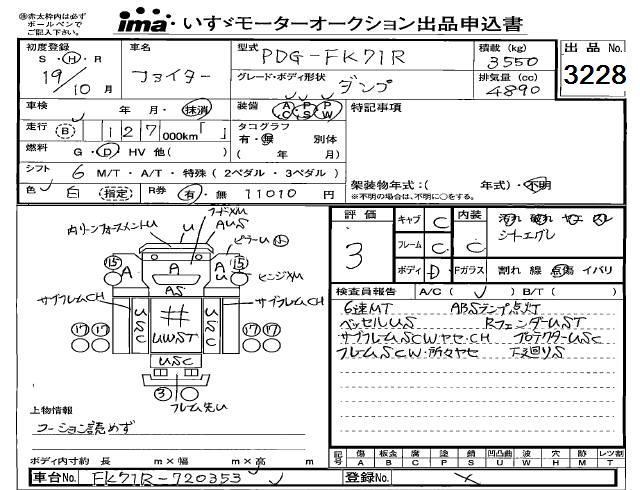 ㊟赤太枠内は必ず
ボールペンで
ご記入下さい。
ima いすゞモーターオークション出品申込書
初度登録
S・H・R
19/10月
車名
ファイター
型式
PDG-FK71R
積載(kg)
3550
出品 No.
3228
グレード・ボディ形状
ダンプ
排気量(cc)
4890
車検 年 月・抹消
装備 AC PS PW
特記事項
走行 (B) 127000km「 」
タコグラフ
有・無 別体
( 年 月)
燃料 G・D HV 他( )
シフト 6 M/T・A/T・特殊(2ペダル・3ペダル)
架装物年式:( 年式)・不明
※不明の場合は不明に○をする。
色 白 (指定) R券 有・無 11010円
評価
3
キャブ C
内装 汚れ 破れ ヤニ スレ
シートエグレ
フレーム C
C
ボディ D
Fガラス 割れ 線 点傷 イバリ
検査員報告 A/C( ) B/T( )
6速MT ABSランプ点灯
ベッセルUS RフェンダーUST
サブフレームSCWヤセ・CH プロテクターUSC
フレームSCW・所々ヤセ 下廻りS
内リーンフォースメントU
U
フードメU
AUS
ピラーU 小
15
A
A
A
U
15
ヒンジメU
AS
サブフレームCH
サブフレームCH
USC
UWST
USC
17 17
17 17
USC
3
フレーム先U
上物情報
コーション読めず
ボディ内寸約 長 m×幅 m×高 m
記号 傷A 板金B 腐C 塗P 錆S 凹凸曲U 波W 穴H 跡M レツ割T
車台No. FK71R-720353
登録No.